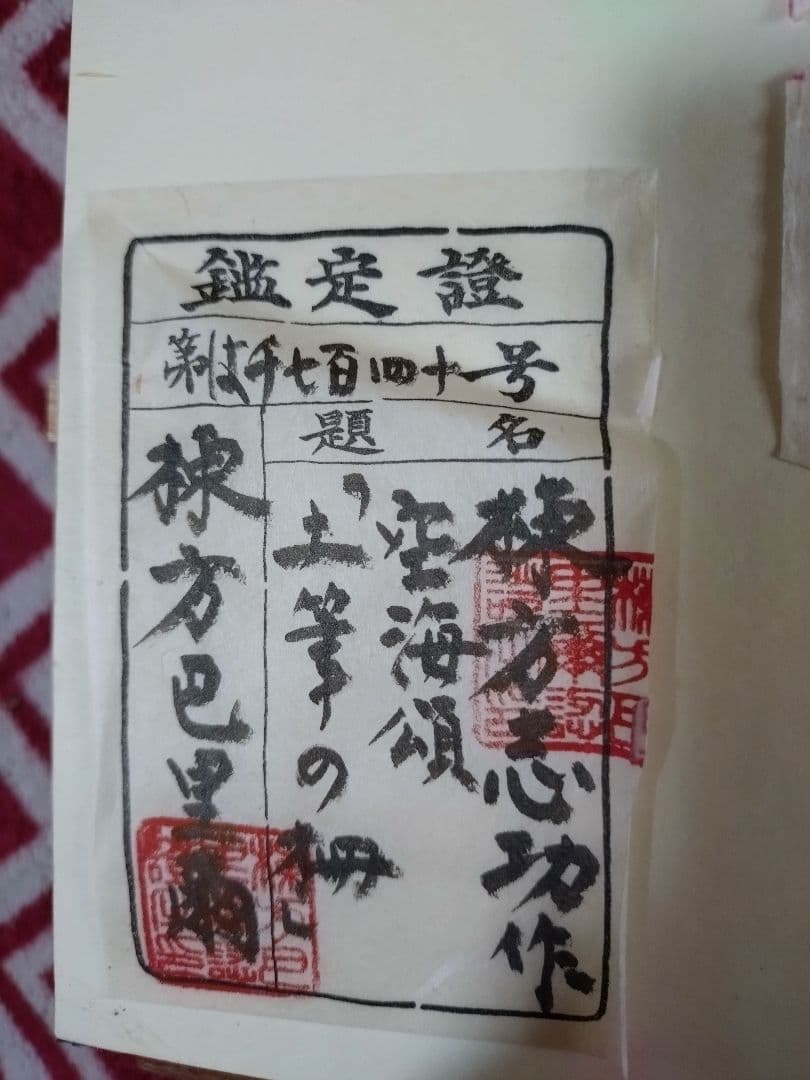 鑑定證
第は千七百四十号
題名
棟方志功作
空海頌
「土筆の柵」
棟方巴里爾